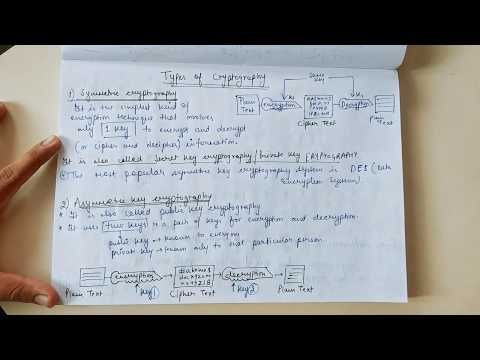 Types of Cryptography
1) Symmetric cryptography
It is the simplest kind of
encryption technique that involves
only 1 key to encrypt and decrypt
(or cipher and decipher) information.
It is also called Secret key cryptography / Private key CRYPTOGRAPHY
The most popular symmetric key cryptography system is DES (Data
Encryption System)
Same
key
Plain
Text
encryption
Cipher Text
Decryption
Plain
Text
2) Asymmetric key cryptography
* It is also called public key cryptography
* It uses two keys a pair of keys for encryption and decryption.
public key → known to everyone
private key → known only to that particular person.
encryption
decryption
Plain Text
key 1
Cipher Text
key 2
Plain Text